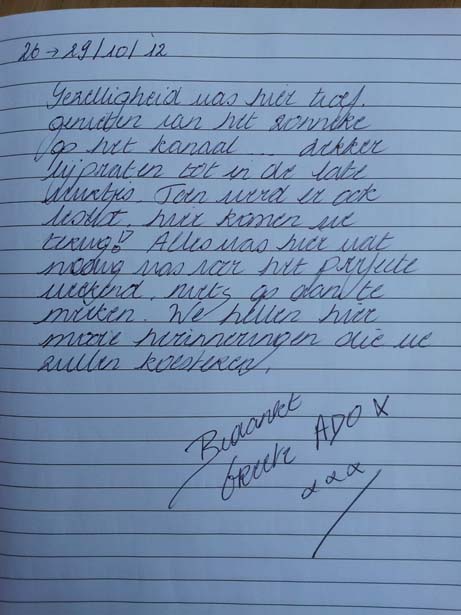 26 → 29/10/12
Gezelligheid was hier troef.
genieten van het zonneke
op het kanaal ... lekker
bijpraten tot in de late
uurtjes. Toen werd er ook
beslist, hier komen we
terug!! Alles was hier wat
nodig was voor het perfecte
weekend, niets op aan te
merken. We hebben hier
mooie herinneringen die we
zullen koesteren.
Bedankt
Greetz ADO X
x x x